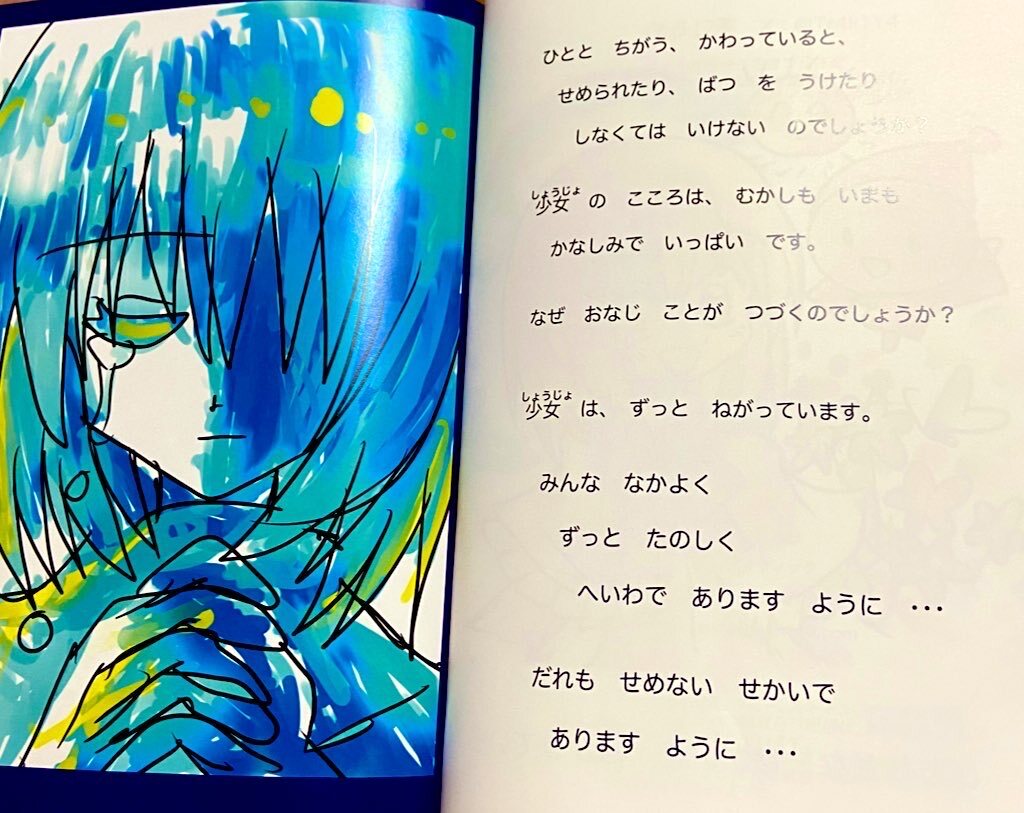 ひとと ちがう、 かわっていると、
せめられたり、 ばつ を うけたり
しなくては いけない のでしょうか？
少女 の こころは、 むかしも いまも
かなしみで いっぱい です。
なぜ おなじ ことが つづくのでしょうか？
少女 は、 ずっと ねがっています。
みんな なかよく
ずっと たのしく
へいわで あります ように ・・・
だれも せめない せかいで
あります ように ・・・